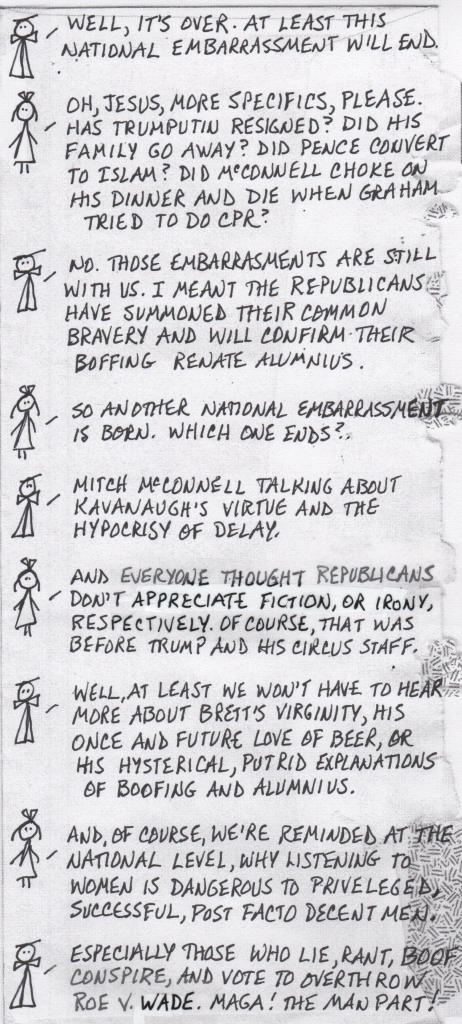 WELL, IT'S OVER. AT LEAST THIS
NATIONAL EMBARRASSMENT WILL END.
OH, JESUS, MORE SPECIFICS, PLEASE.
HAS TRUMPUTIN RESIGNED? DID HIS
FAMILY GO AWAY? DID PENCE CONVERT
TO ISLAM? DID McCONNELL CHOKE ON
HIS DINNER AND DIE WHEN GRAHAM
TRIED TO DO CPR?
NO. THOSE EMBARRASMENTS ARE STILL
WITH US. I MEANT THE REPUBLICANS
HAVE SUMMONED THEIR COMMON
BRAVERY AND WILL CONFIRM THEIR
BOFFING RENATE ALUMNIUS.
SO ANOTHER NATIONAL EMBARRASSMENT
IS BORN. WHICH ONE ENDS?
MITCH McCONNELL TALKING ABOUT
KAVANAUGH'S VIRTUE AND THE
HYPOCRISY OF DELAY.
AND EVERYONE THOUGHT REPUBLICANS
DON'T APPRECIATE FICTION, OR IRONY,
RESPECTIVELY. OF COURSE, THAT WAS
BEFORE TRUMP AND HIS CIRCUS STAFF.
WELL, AT LEAST WE WON'T HAVE TO HEAR
MORE ABOUT BRETT'S VIRGINITY, HIS
ONCE AND FUTURE LOVE OF BEER, OR
HIS HYSTERICAL, PUTRID EXPLANATIONS
OF BOOFING AND ALUMNIUS.
AND, OF COURSE, WE'RE REMINDED AT THE
NATIONAL LEVEL, WHY LISTENING TO
WOMEN IS DANGEROUS TO PRIVELEGED,
SUCCESSFUL, POST FACTO DECENT MEN.
ESPECIALLY THOSE WHO LIE, RANT, BOOF
CONSPIRE, AND VOTE TO OVERTHROW
ROE V. WADE. MAGA! THE MAN PART!